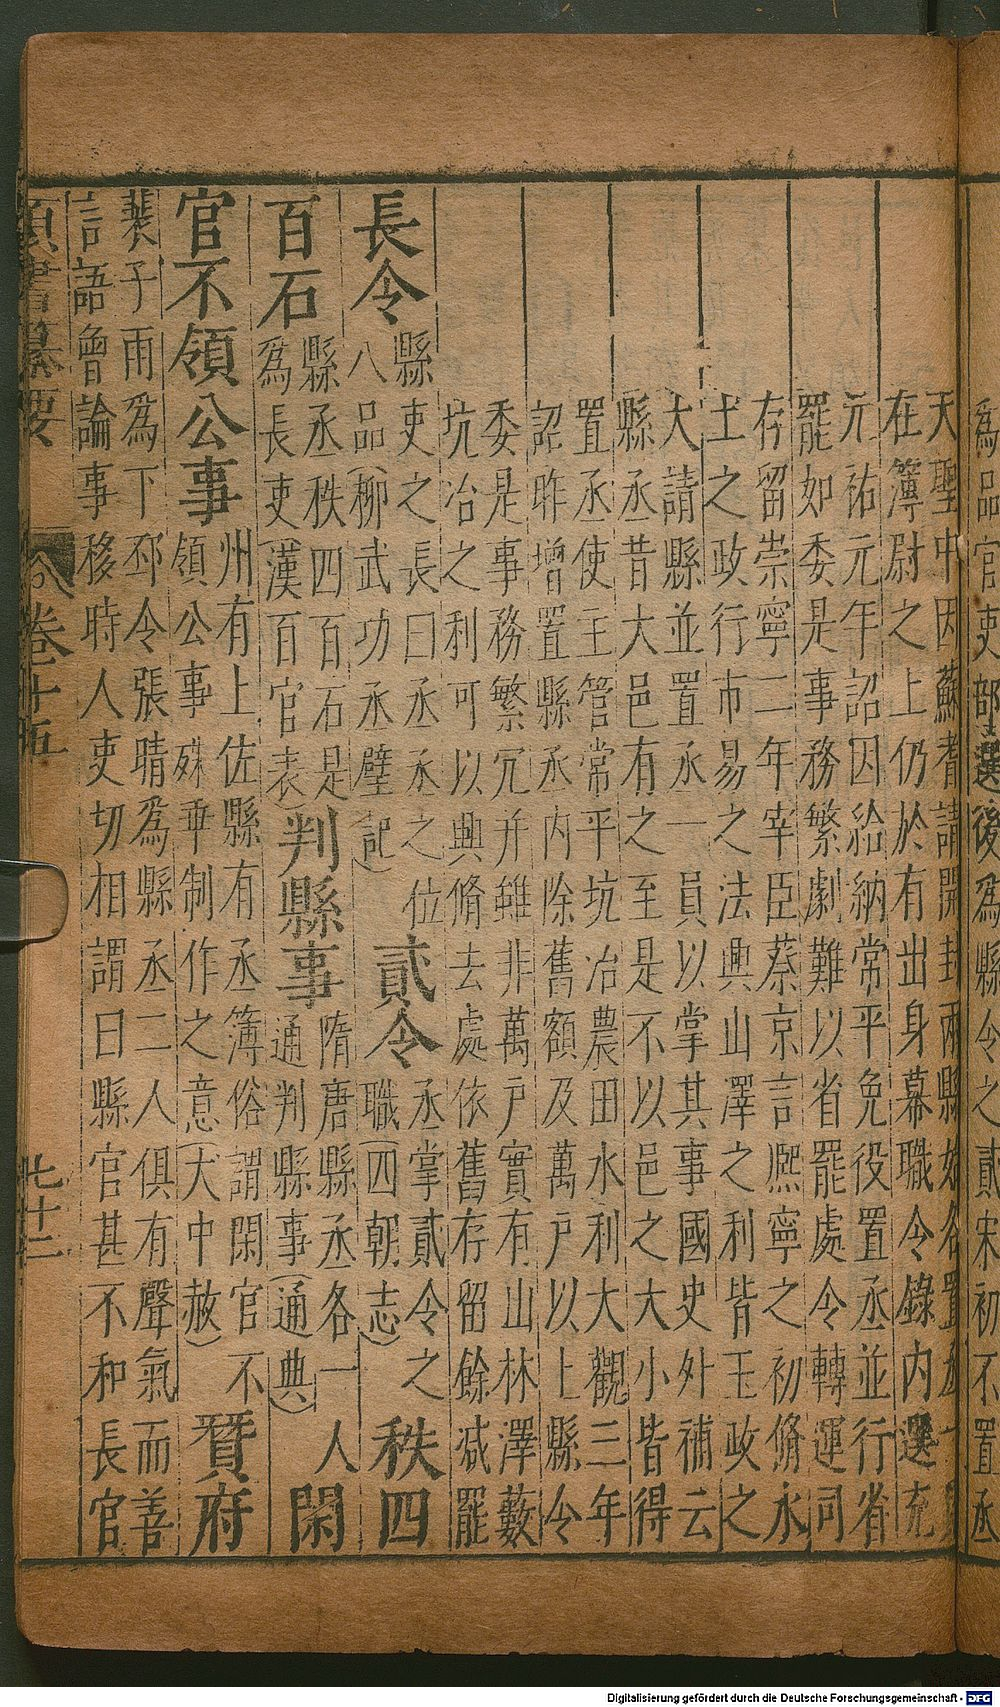 為品官吏部選後為縣令之貳宋初不置丞
天聖中因蘇耆請開封兩縣始各置丞一員
在簿尉之上仍於有出身幕職令錄內選充
元祐元年詔因給納常平免役置丞並行省
罷如委是事務繁劇難以省罷處令轉運司
存留崇寧二年宰臣蔡京言熙寧之初脩水
土之政行市易之法興山澤之利皆玉政之
大請縣並置丞一員以掌其事國史外補云
縣丞昔大邑有之至是不以邑之大小皆得
置丞使主管常平坑冶農田水利大觀三年
詔昨增置縣丞內除舊額及萬戶以上縣令
委是事務繁冗并雖非萬戶實有山林澤藪
坑冶之利可以興脩去處依舊存留餘減罷
長令
縣吏之長曰丞丞之位
八品(柳武功丞壁記)
貳令
丞掌貳令之
職(四朝志)
秩四
百石
縣丞秩四百石是
為長吏(漢百官表)
判縣事
隋唐縣丞各一人
通判縣事(通典)
閑
官不領公事
州有上佐縣有丞簿俗謂閑官不
領公事殊乖制作之意(大中赦)
賢府
裴子雨為下邳令張晴為縣丞二人俱有聲氣而善
言語曾論事移時人吏切相謂曰縣官甚不和長官
類書纂要 卷十五 七十二
Digitalisierung gefördert durch die Deutsche Forschungsgemeinschaft - DFG